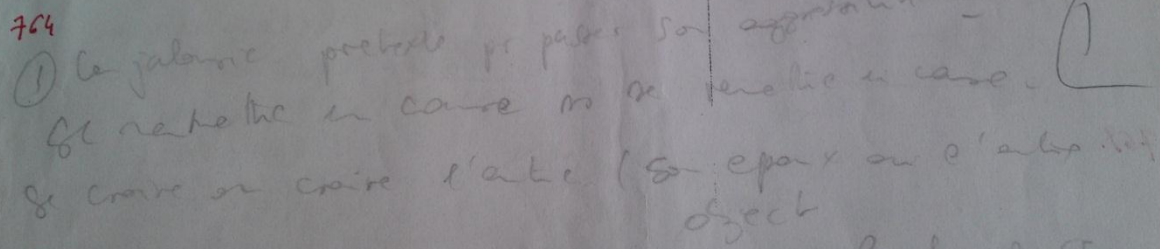 764
① La jalousie prétexte pr passer son
Se remettre en cause ou se remettre en cause.
Se croire ou croire l'autre (son époux ou l'autre
object